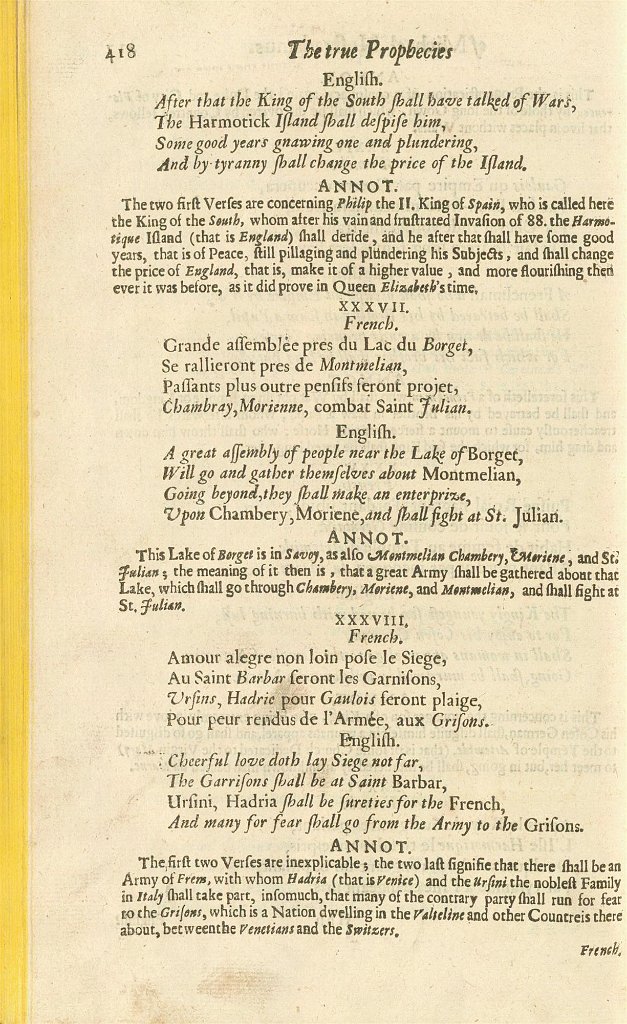 418 The true Prophecies
Engliſh.
After that the King of the South ſhall have talked of Wars,
The Harmotick Iſland ſhall deſpiſe him,
Some good years gnawing one and plundering,
And by tyranny ſhall change the price of the Iſland.
ANNOT.
The two firſt Verſes are concerning Philip the II. King of Spain, who is called here
the King of the South, whom after his vain and fruſtrated Invaſion of 88. the Harmo-
tique Iſland (that is England) ſhall deride, and he after that ſhall have ſome good
years, that is of Peace, ſtill pillaging and plundering his Subjects, and ſhall change
the price of England, that is, make it of a higher value, and more flouriſhing then
ever it was before, as it did prove in Queen Elizabeth's time.
XXXVII.
French.
Grande aſſemblée pres du Lac du Borget,
Se rallieront pres de Montmelian,
Paſſants plus outre penſifs feront projet,
Chambray, Morienne, combat Saint Julian.
Engliſh.
A great aſſembly of people near the Lake of Borget,
Will go and gather themſelves about Montmelian,
Going beyond, they ſhall make an enterprize,
Upon Chambery, Moriene, and ſhall fight at St. Julian.
ANNOT.
This Lake of Borget is in Savoy, as alſo Montmelian Chambery, Moriene, and St.
Julian; the meaning of it then is, that a great Army ſhall be gathered about that
Lake, which ſhall go through Chambery, Moriene, and Montmelian, and ſhall fight at
St. Julian.
XXXVIII.
French.
Amour alegre non loin poſe le Siege,
Au Saint Barbar ſeront les Garniſons,
Urſins, Hadrie pour Gaulois feront plaige,
Pour peur rendus de l'Armée, aux Griſons.
Engliſh.
Cheerful love doth lay Siege not far,
The Garriſons ſhall be at Saint Barbar,
Urſini, Hadria ſhall be ſureties for the French,
And many for fear ſhall go from the Army to the Griſons.
ANNOT.
The firſt two Verſes are inexplicable; the two laſt ſignifie that there ſhall be an
Army of Frem, with whom Hadria (that is Venice) and the Urſini the nobleſt Family
in Italy ſhall take part, inſomuch, that many of the contrary party ſhall run for fear
to the Griſons, which is a Nation dwelling in the Valteline and other Countreis there
about, between the Venetians and the Switzers.
French.